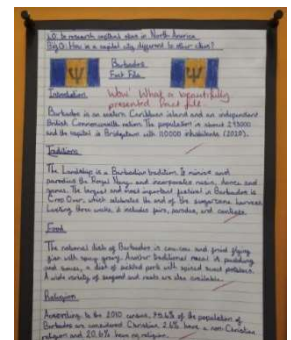 LO: To research capital cities in North America
Big Q: How is a capital city different to other cities?
Barbados
Fact File
Introduction
Wow! What a beautifully
presented fact file.
Barbados is an eastern Caribbean island and an independent
British Commonwealth nation. The population is about
and the capital is Bridgetown with inhabitants (2020).
Traditions
The Landship is a Barbadian tradition. It mimics and
parodies the Royal Navy and incorporates music, dance and
games. The largest and most important festival in Barbados is
Crop Over, which celebrates the end of the sugarcane harvest.
Lasting three weeks, it includes fairs, parades, and contests.
Food
The national dish of Barbados is cou-cou and fried flying
fish with spicy gravy. Another traditional meal is pudding
and souse, a dish of pickled pork with spiced sweet potatoes.
A wide variety of seafood and meats are also available.
Religion
According to the 2010 census, 75.6% of the population of
Barbados are considered Christian, 2.6% have a non-Christian
religion and 20.6% have no religion.